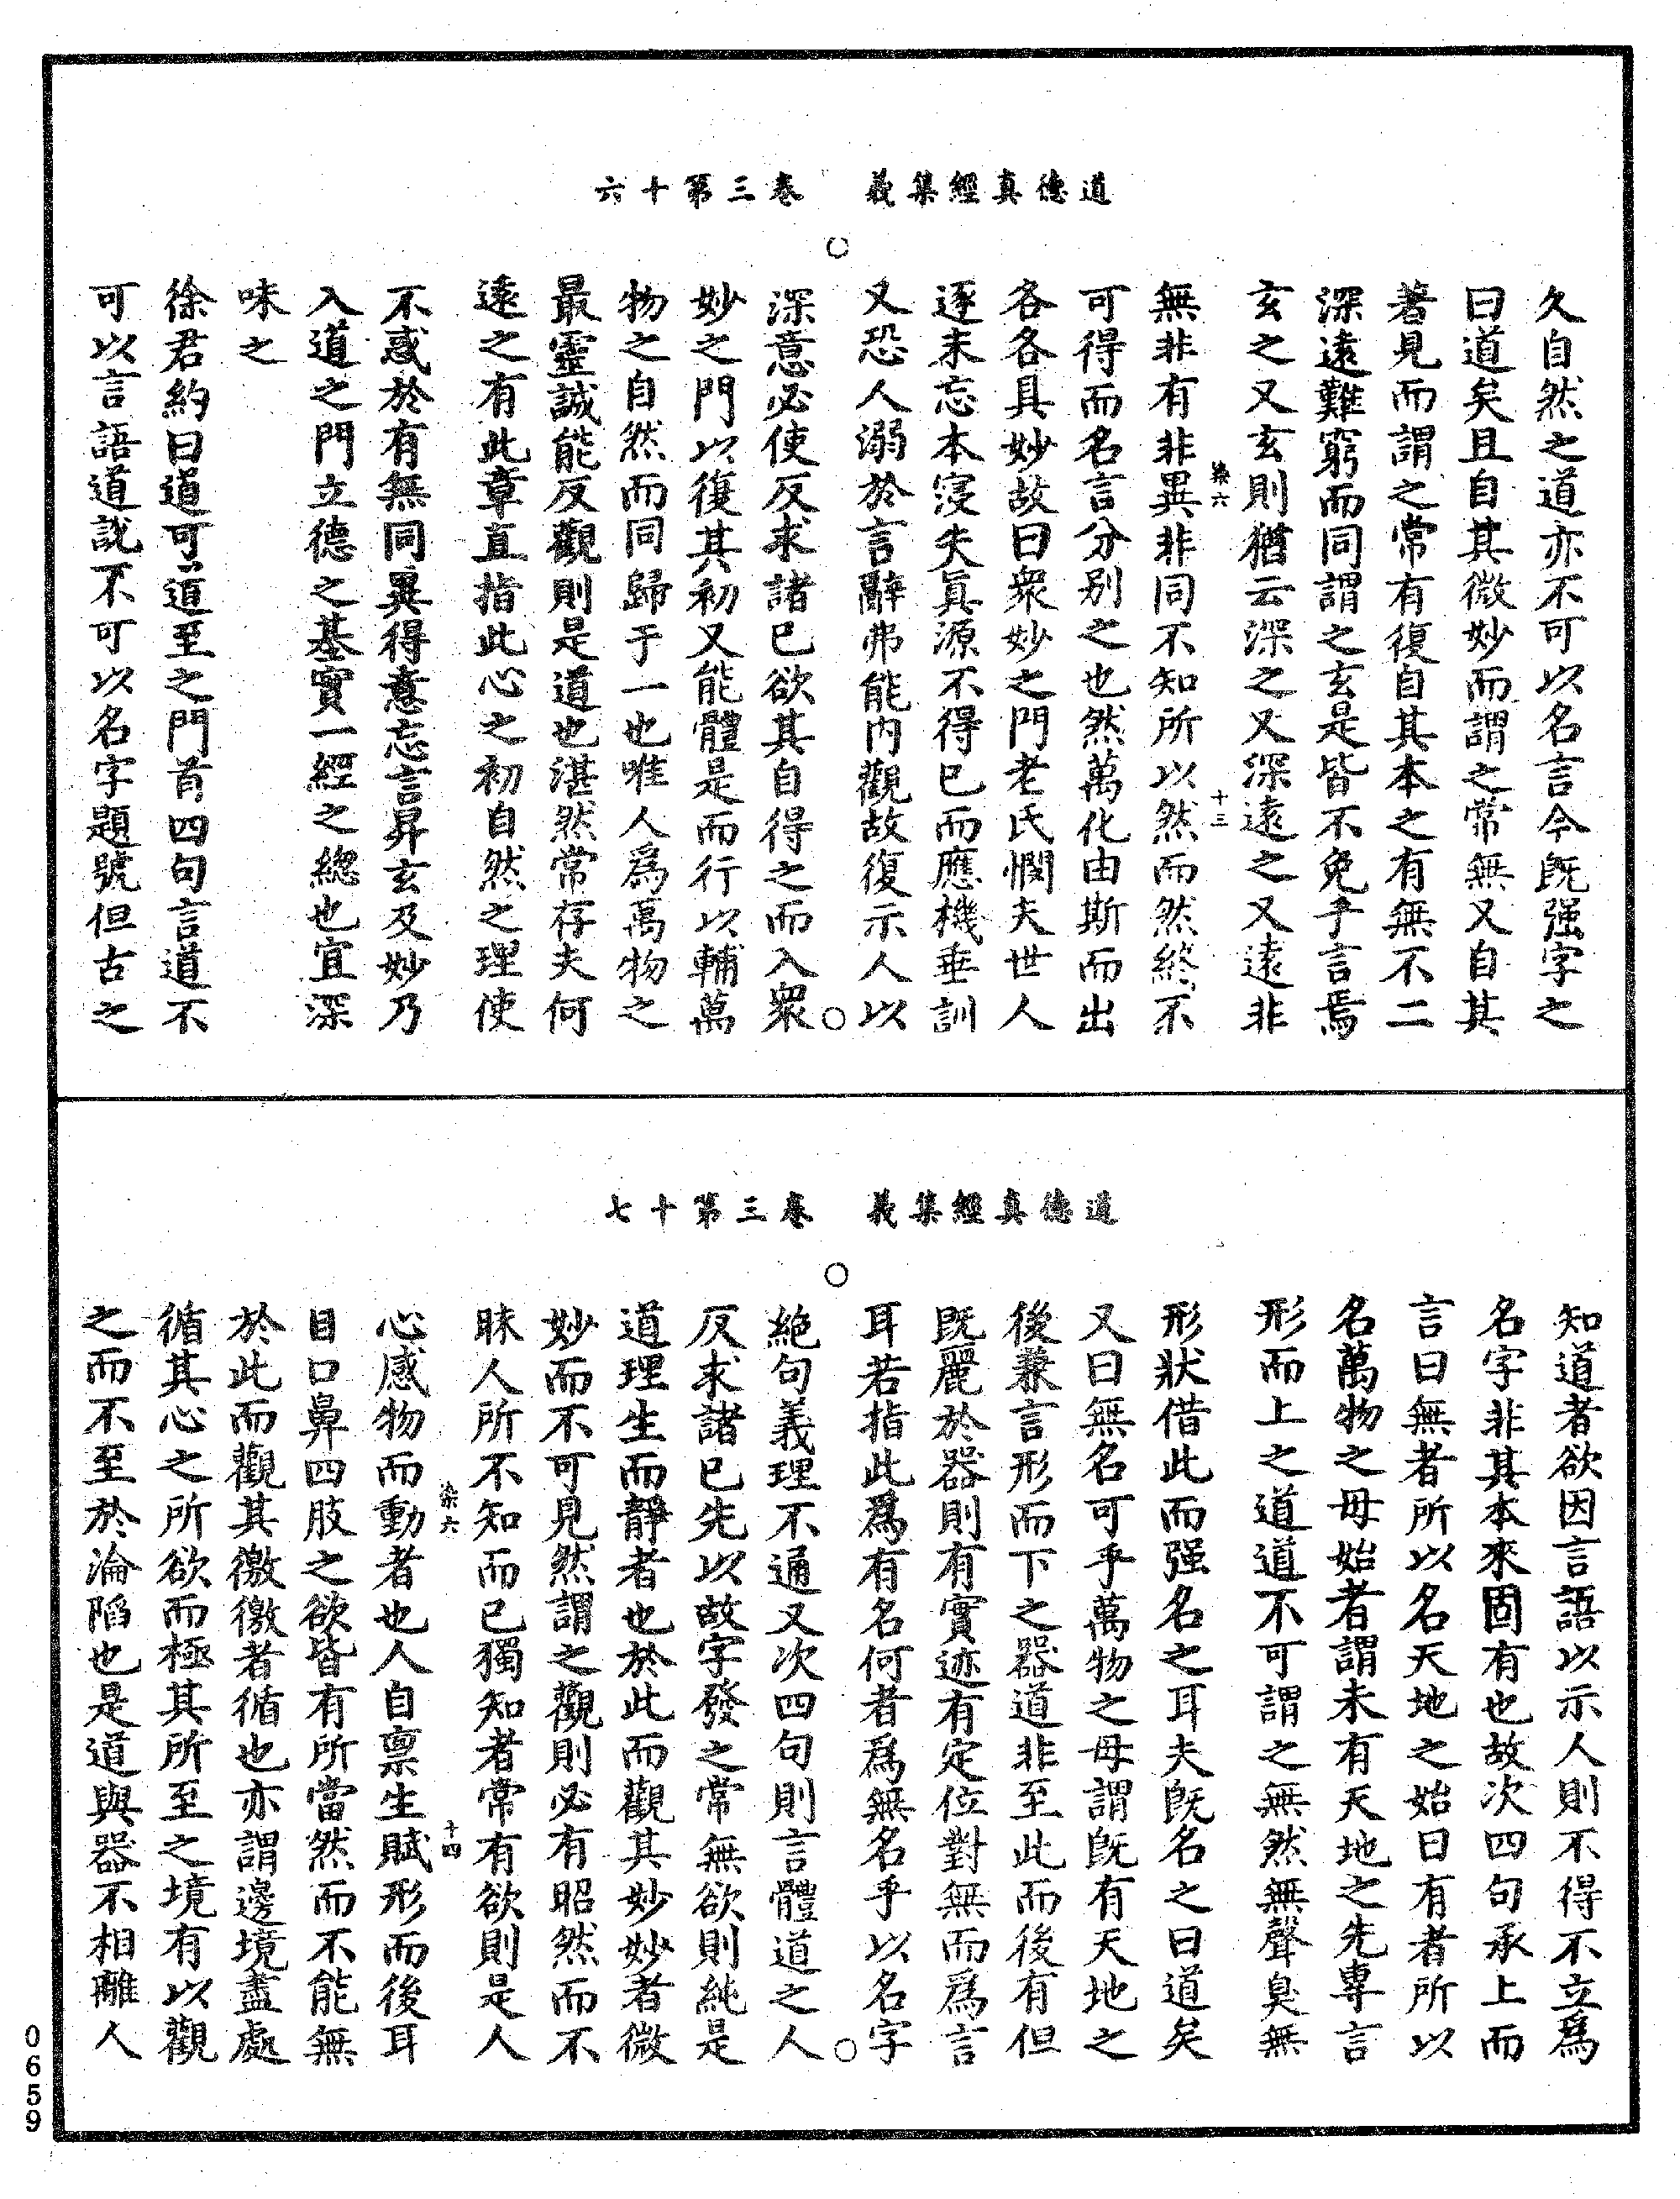 道德真經集義　卷三第十六
久自然之道亦不可以名言今既强字之
曰道矣且自其微妙而謂之常無又自其
著見而謂之常有復自其本之有無不二
深遠難窮而同謂之玄是皆不免乎言焉
玄之又玄則猶云深之又深遠之又遠非
染六　十三
無非有非異非同不知所以然而然終不
可得而名言分别之也然萬化由斯而出
各各具妙故曰衆妙之門老氏憫夫世人
逐末忘本寖失真源不得已而應機垂訓
又恐人溺於言辭弗能内觀故復示人以
深意必使反求諸已欲其自得之而入衆
妙之門以復其初又能體是而行以輔萬
物之自然而同歸于一也唯人爲萬物之
最靈誠能反觀則是道也湛然常存夫何
遠之有此章直指此心之初自然之理使
不惑於有無同異得意忘言昇玄及妙乃
入道之門立德之基實一經之總也宜深
味之
徐君約曰道可道至之門首四句言道不
可以言語道說不可以名字題號但古之
道德真經集義　卷三第十七
知道者欲因言語以示人則不得不立爲
名字非其本來固有也故次四句承上而
言曰無者所以名天地之始曰有者所以
名萬物之母始者謂未有天地之先專言
形而上之道道不可謂之無然無聲臭無
形狀借此而强名之耳夫既名之曰道矣
又曰無名可乎萬物之母謂既有天地之
後兼言形而下之器道非至此而後有但
既麗於器則有實迹有定位對無而爲言
耳若指此爲有名何者爲無名乎以名字
絶句義理不通又次四句則言體道之人
反求諸已先以故字發之常無欲則純是
道理生而靜者也於此而觀其妙妙者微
妙而不可見然謂之觀則必有昭然而不
昧人所不知而已獨知者常有欲則是人
染六　十四
心感物而動者也人自禀生賦形而後耳
目口鼻四肢之欲皆有所當然而不能無
於此而觀其徼徼者循也亦謂邊境盡處
循其心之所欲而極其所至之境有以觀
之而不至於淪陷也是道與器不相離人
0659